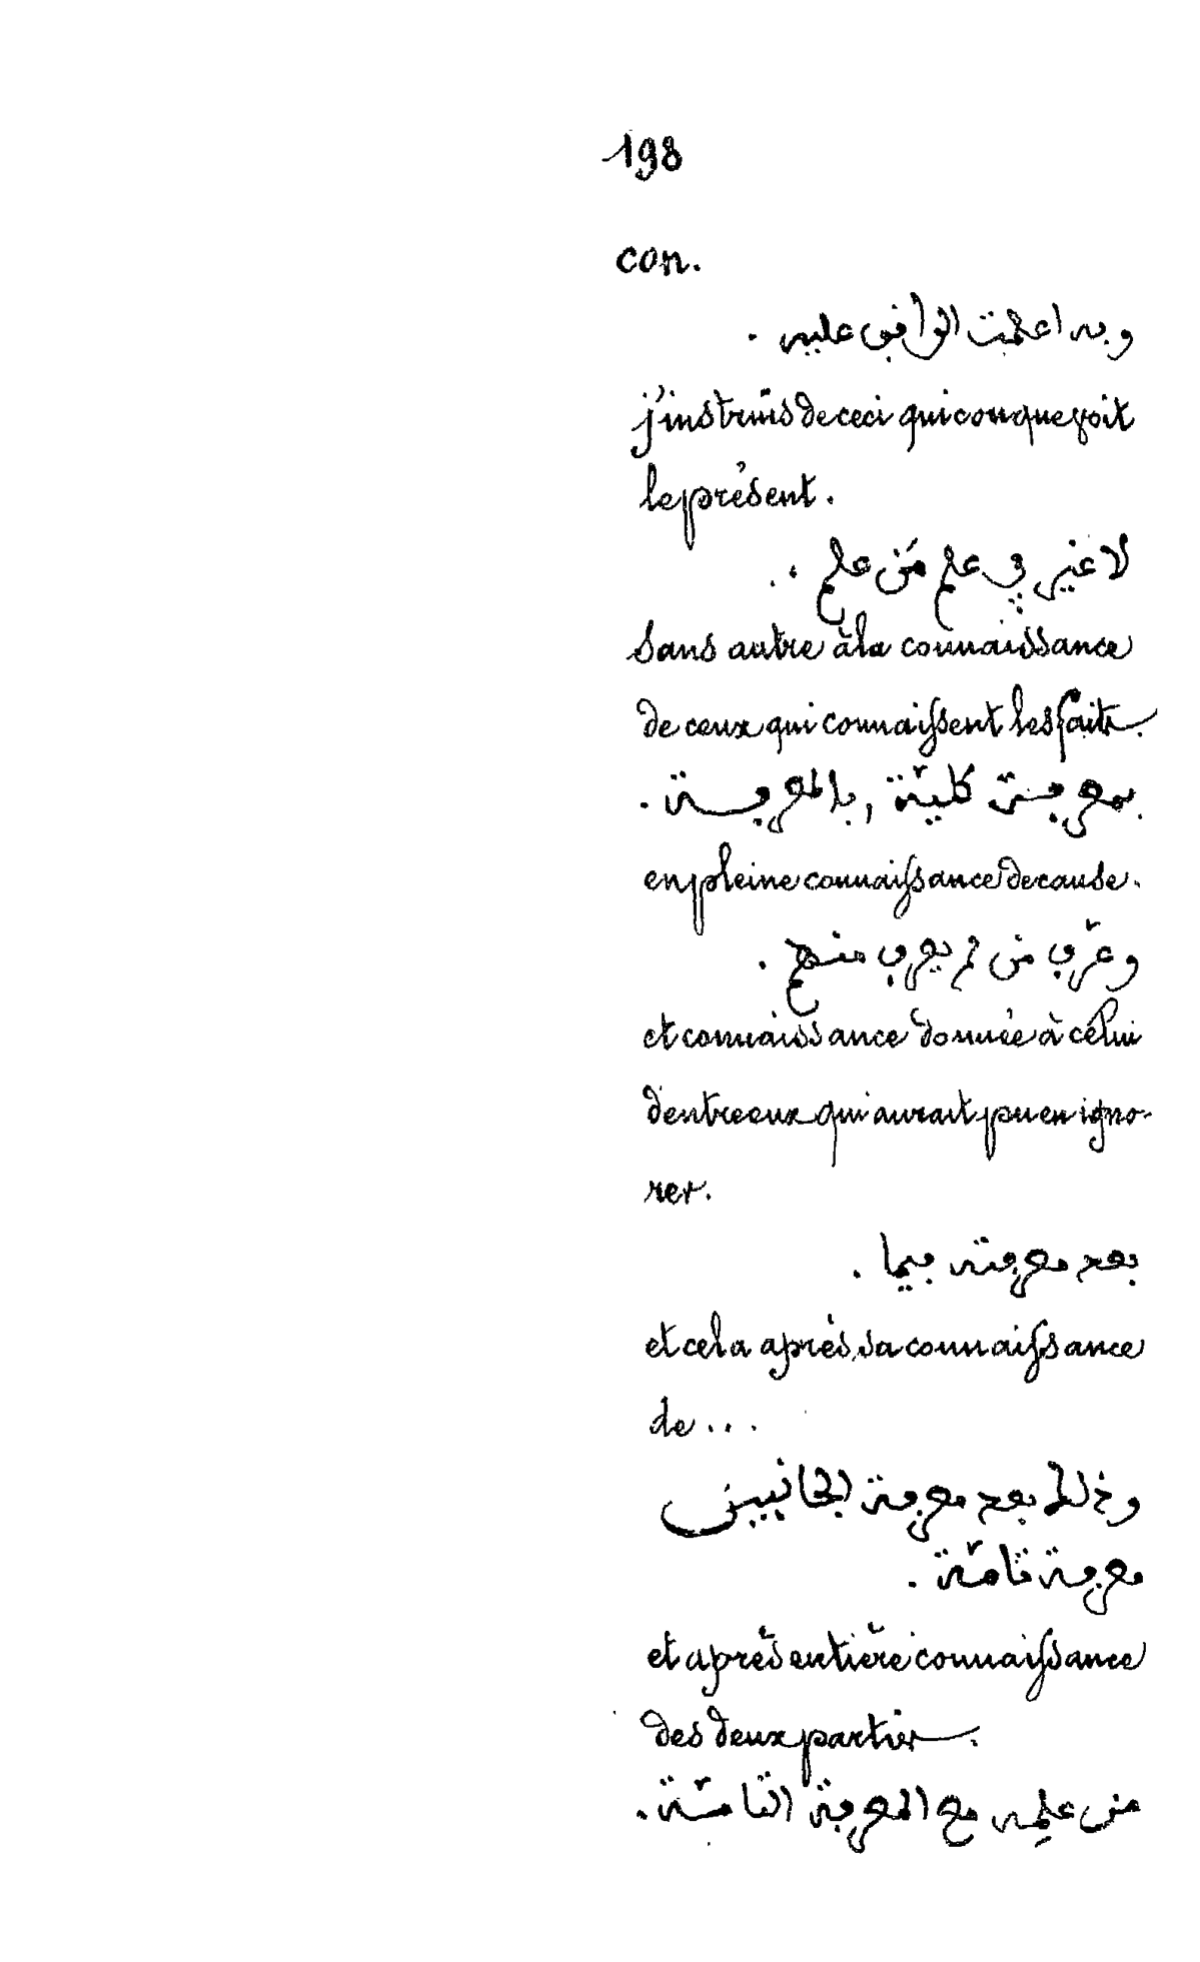 198
con.
وبه اعلمت الواقف عليه .
j'instruis de ceci quiconque voit
le présent.
لا غير في علم مَن علم . .
sans autre à la connaissance
de ceux qui connaissent les faits.
بمعرفة كليّة , بالمعرفة .
en pleine connaissance de cause.
وعرّف من لم يعرف منهم .
et connaissance donnée à celui
d'entre eux qui aurait pu en igno-
rer.
بعد معرفته فيما .
et cela après sa connaissance
de ...
وذلك بعد معرفة الجانبين
معرفة تامّة .
et après entière connaissance
des deux parties.
من علمِه مع المعرفة التامّة .